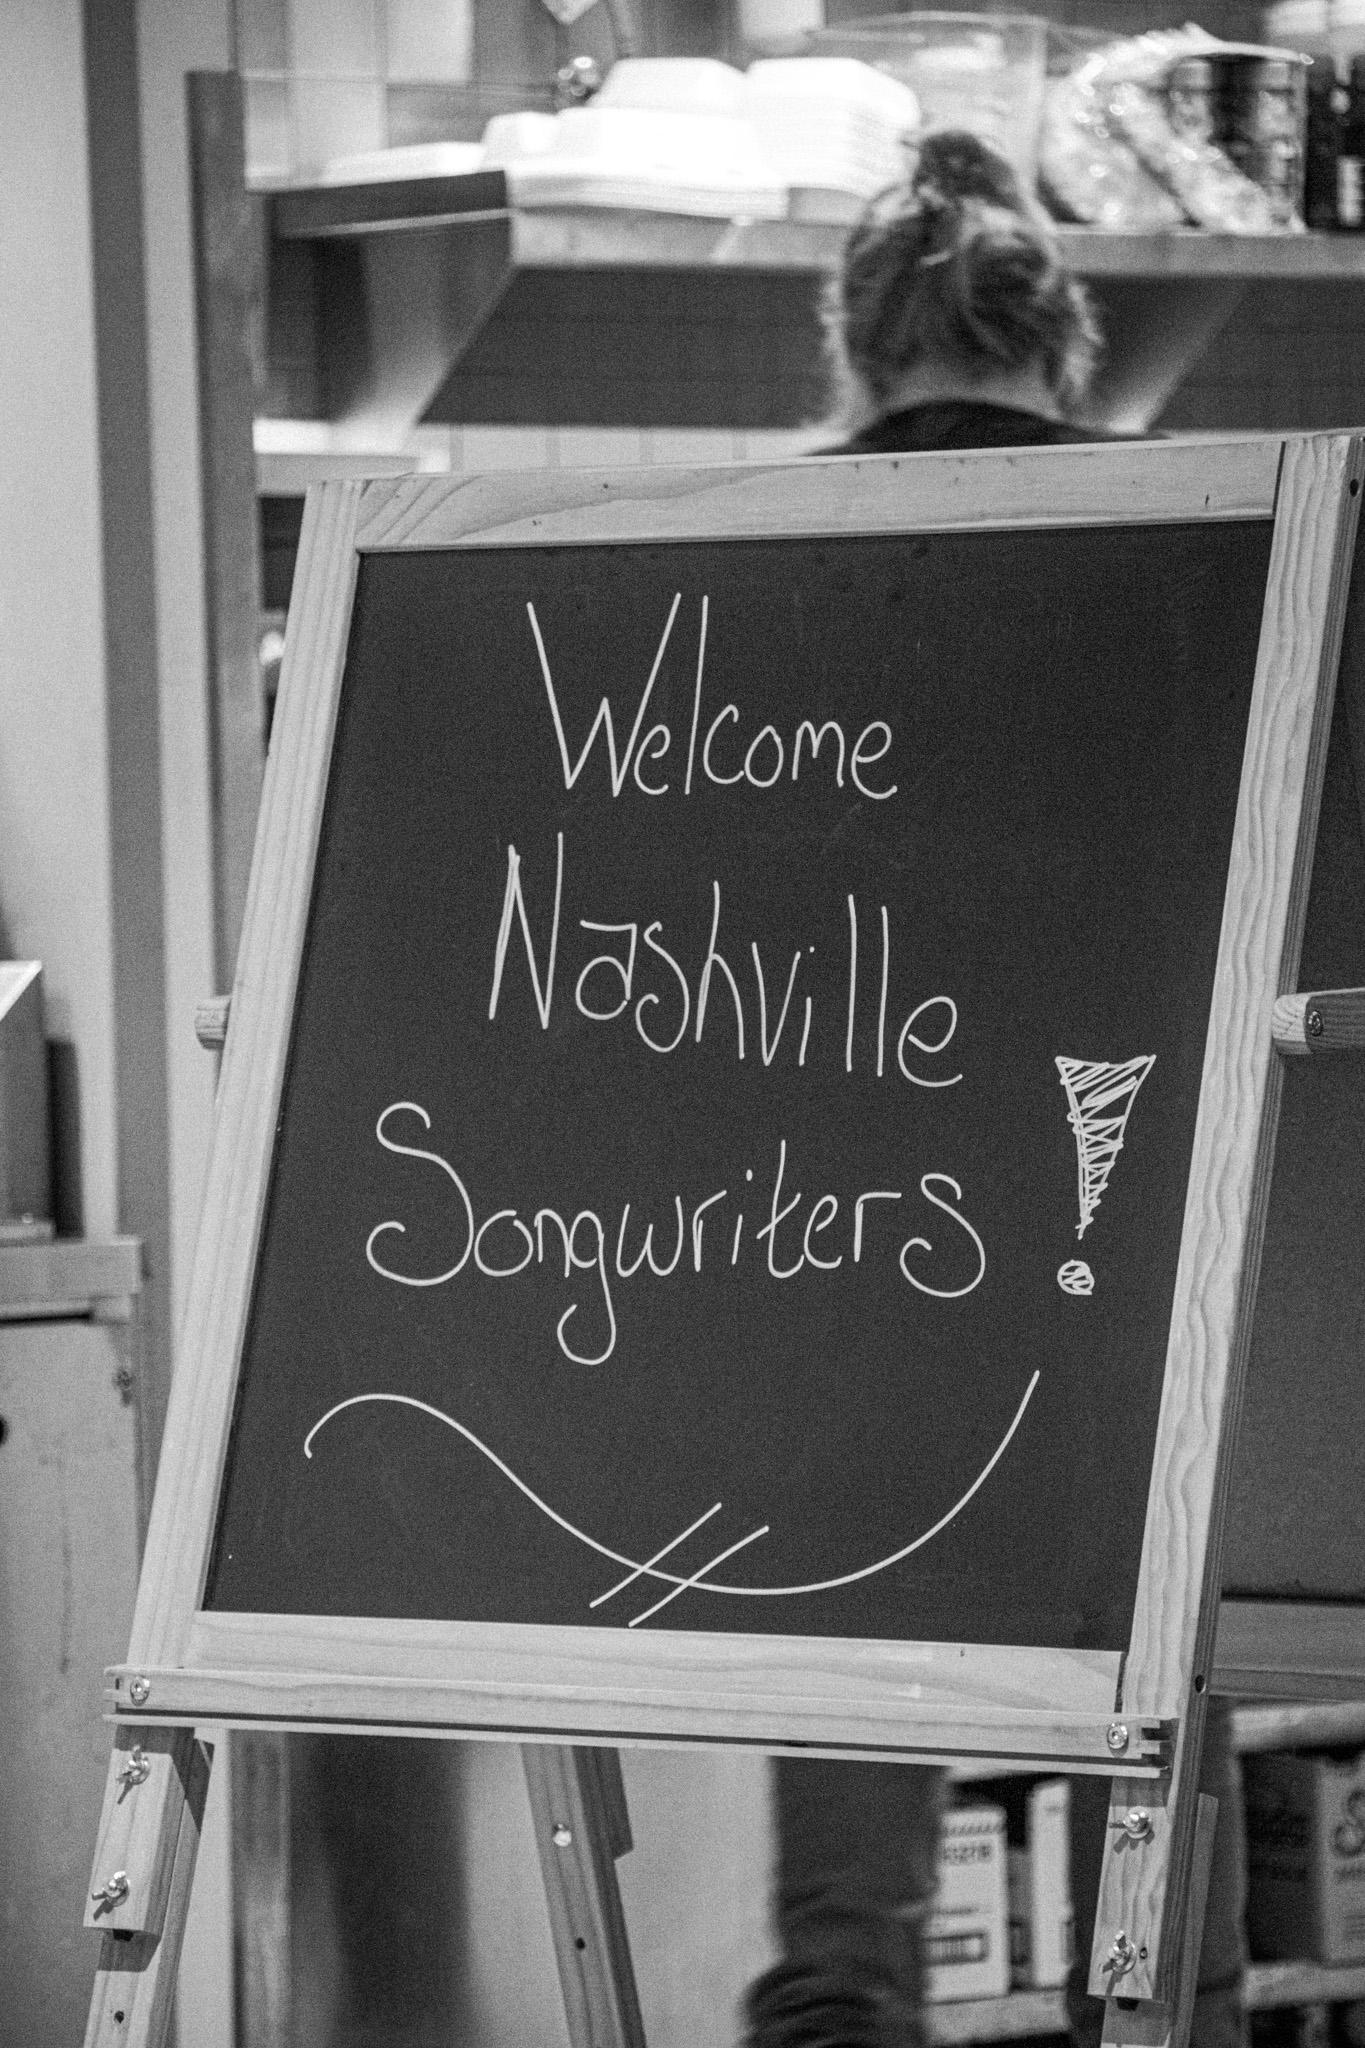 Welcome
Nashville
Songwriters!